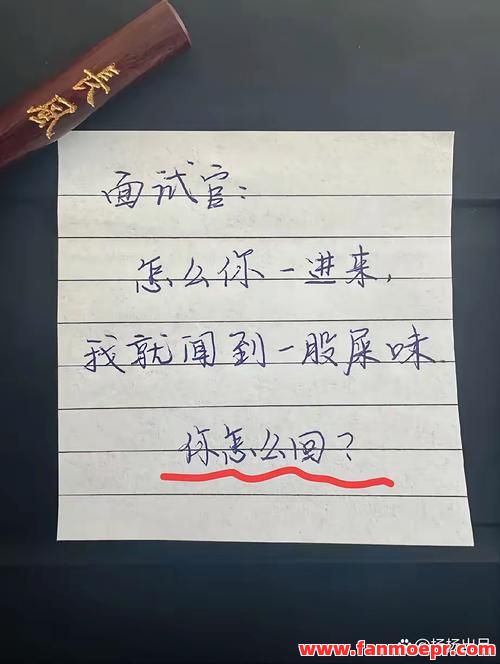 長風
面试官：
怎么你一进来，
我就闻到一股屎味.
你怎么回？
www.fanmoepr.com